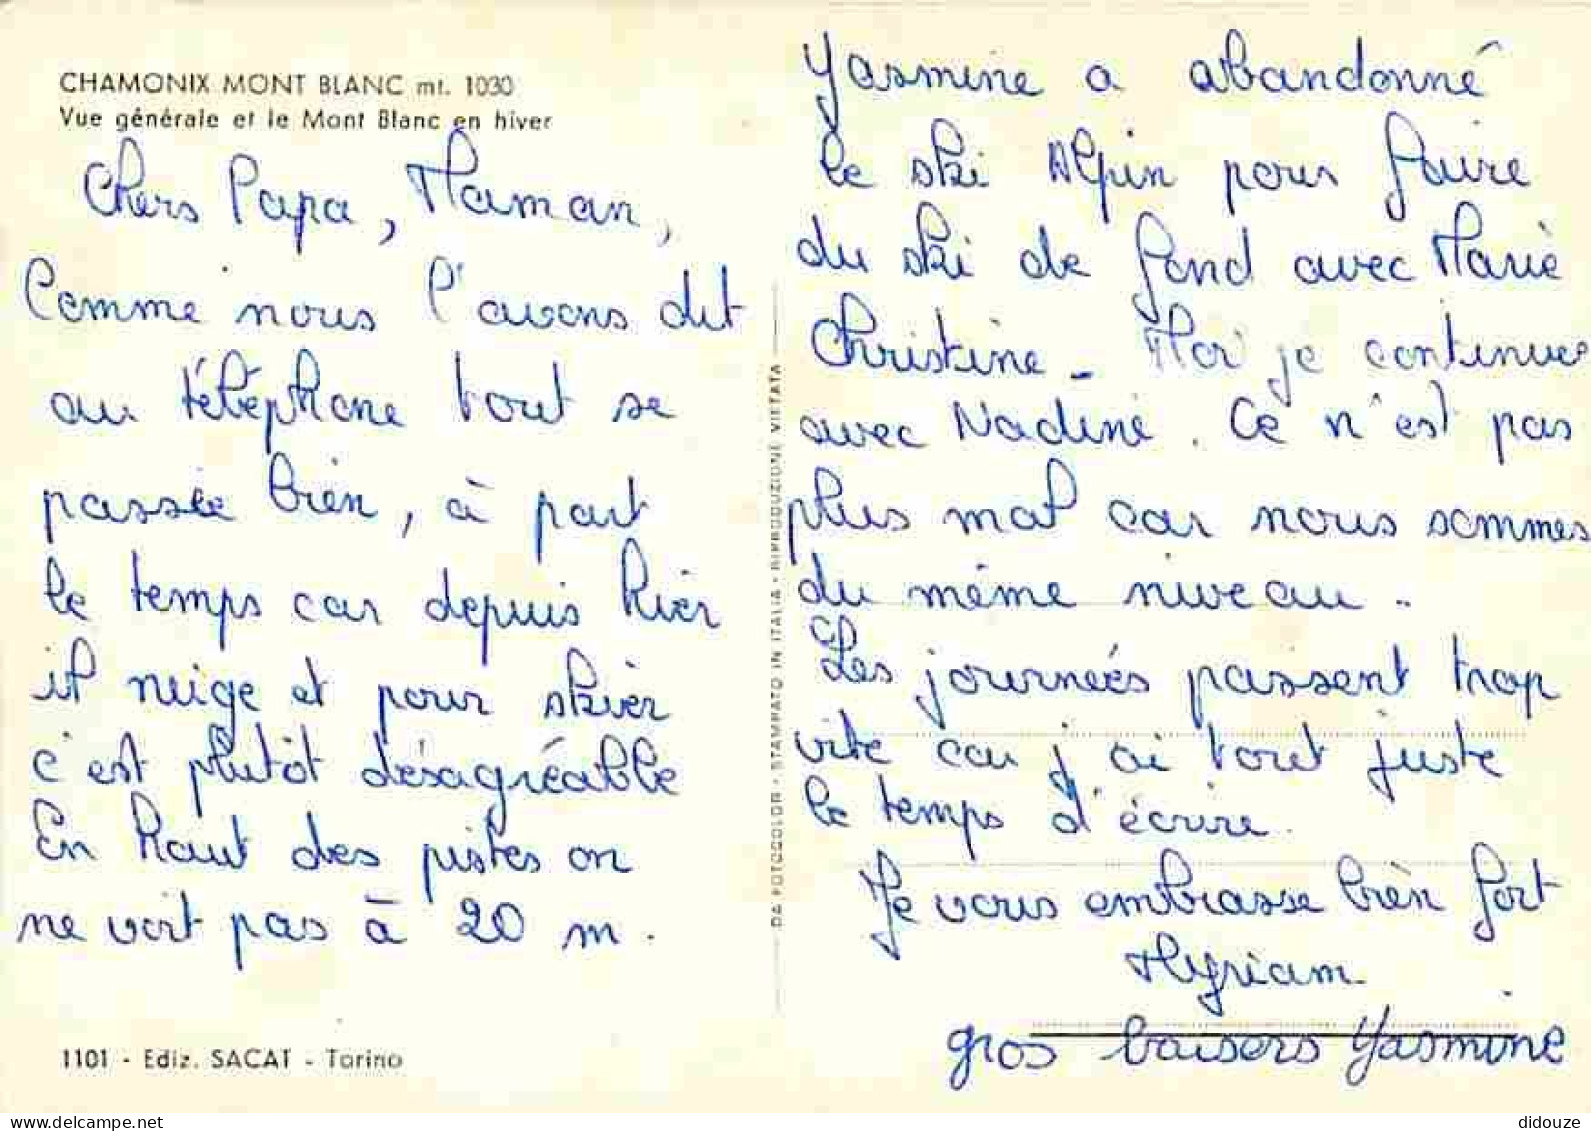 CHAMONIX MONT BLANC mt. 1030
Vue générale et le Mont Blanc en hiver
Chers Papa, Maman,
Comme nous l'avons dit
au téléphone tout se
passée bien, à part
le temps car depuis hier
il neige et pour skier
c'est plutôt désagréable
En haut des pistes on
ne voit pas à 20 m.
1101 - Ediz. SACAT - Torino
DA FOTOCOLOR - STAMPATO IN ITALIA - RIPRODUZIONE VIETATA
Yasmine a abandonné
le ski Alpin pour faire
du ski de fond avec Marie
Christine - Moi je continue
avec Nadine. Ce n'est pas
plus mal car nous sommes
du même niveau.
Les journées passent trop
vite car j'ai tout juste
le temps d'écrire.
Je vous embrasse bien fort
Myriam
gros baisers Yasmine
delcampe.net
didouze